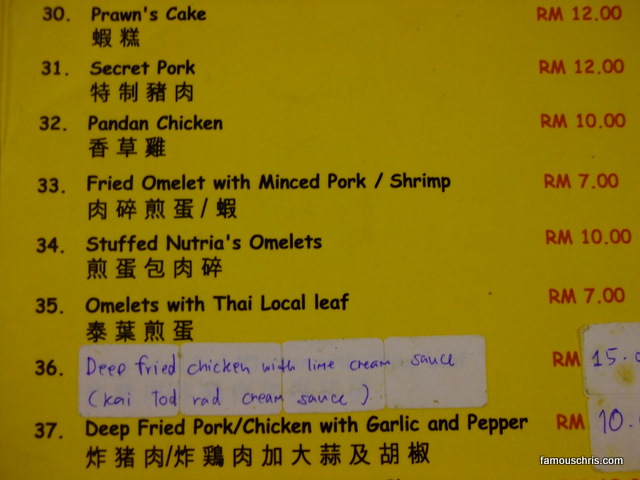 30. Prawn's Cake RM 12.00
蝦糕
31. Secret Pork RM 12.00
特制豬肉
32. Pandan Chicken RM 10.00
香草雞
33. Fried Omelet with Minced Pork / Shrimp RM 7.00
肉碎煎蛋/蝦
34. Stuffed Nutria's Omelets RM 10.00
煎蛋包肉碎
35. Omelets with Thai Local leaf RM 7.00
泰葉煎蛋
36. Deep fried chicken with lime cream sauce RM 15.0
(kai Tod rad cream sauce)
37. Deep Fried Pork/Chicken with Garlic and Pepper RM 10.
炸猪肉/炸鶏肉加大蒜及胡椒
famouschris.com